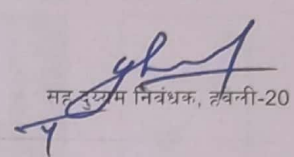 सह दुय्यम निबंधक, हवेली-20